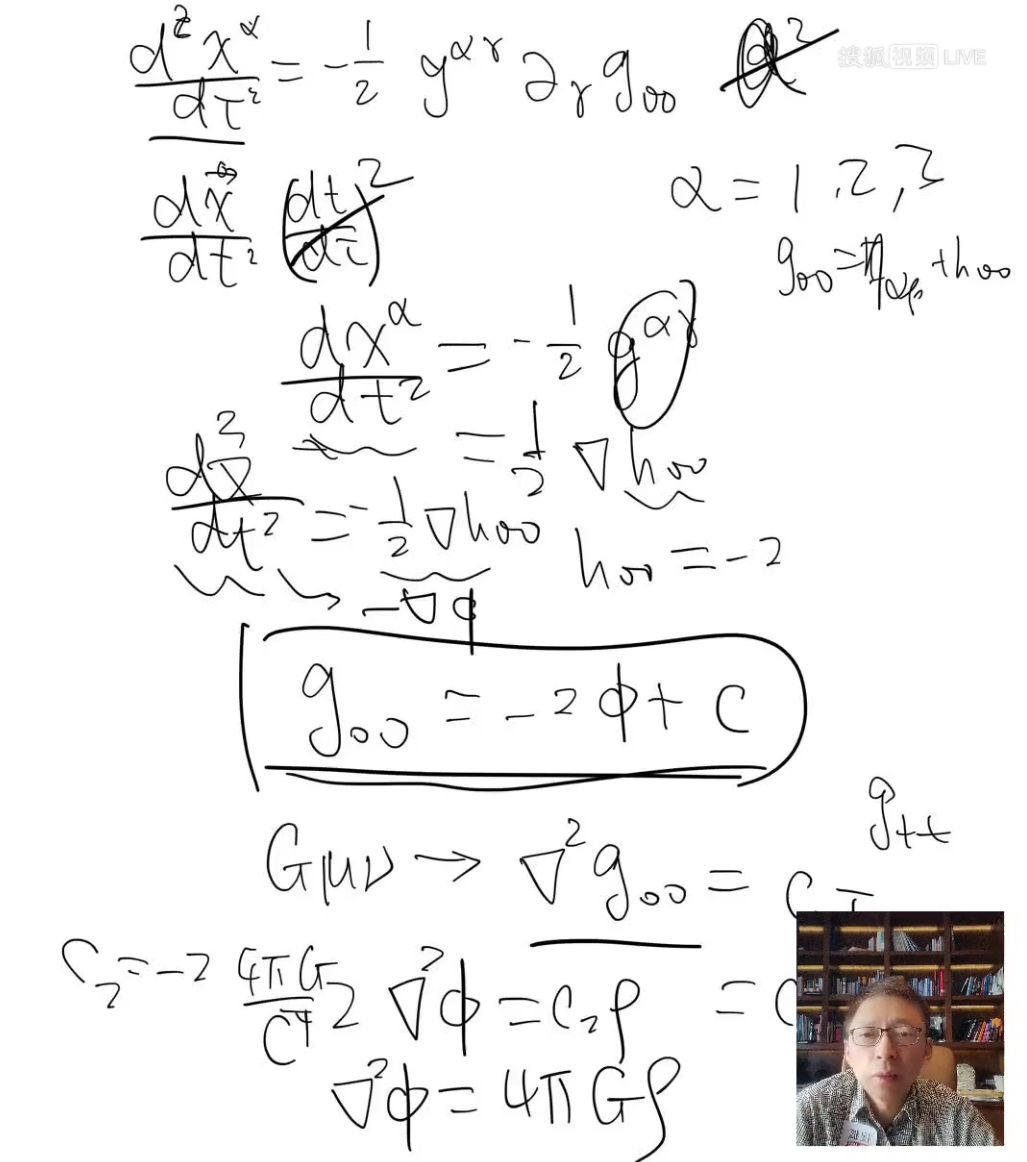 搜狐视频 LIVE
d²x^α/dτ² = -1/2 g^{αγ} ∂_γ g₀₀
α = 1, 2, 3
dx⃗/dt² (dt/dτ)²
g₀₀ = η_{αβ} + h₀₀
dx^α/dt² = -1/2 g^{αγ}
= 1/2 ∇h₀₀
d²x⃗/dt² = -1/2 ∇h₀₀
h₀₀ = -2
-∇φ
g₀₀ = -2φ + C
g_{tt}
Gμν → ∇²g₀₀ = C
C₂ = -2 4πG/C⁴
2 ∇²φ = C₂ρ = C
∇²φ = 4πGρ